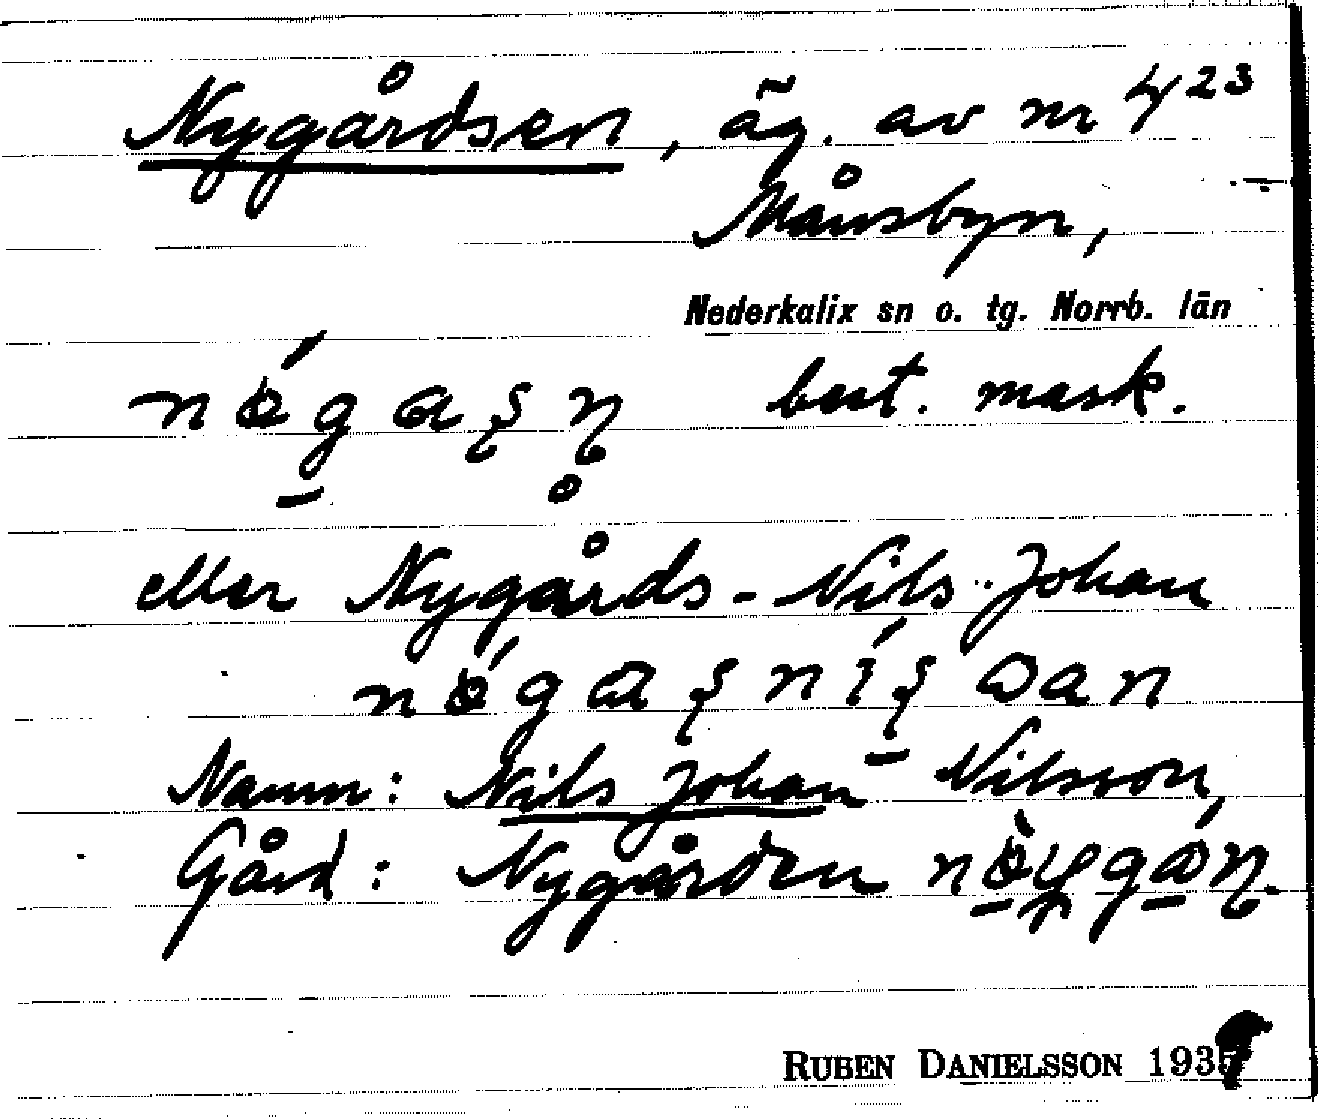 Nygårdsen, äg. av nr 4²³
Månsbyn,
Nederkalix sn o. tg. Norrb. län
best. mask.
eller Nygårds-Nils-Johan
Namn: Nils Johan Nilsson,
Gård: Nygården
RUBEN DANIELSSON 1937